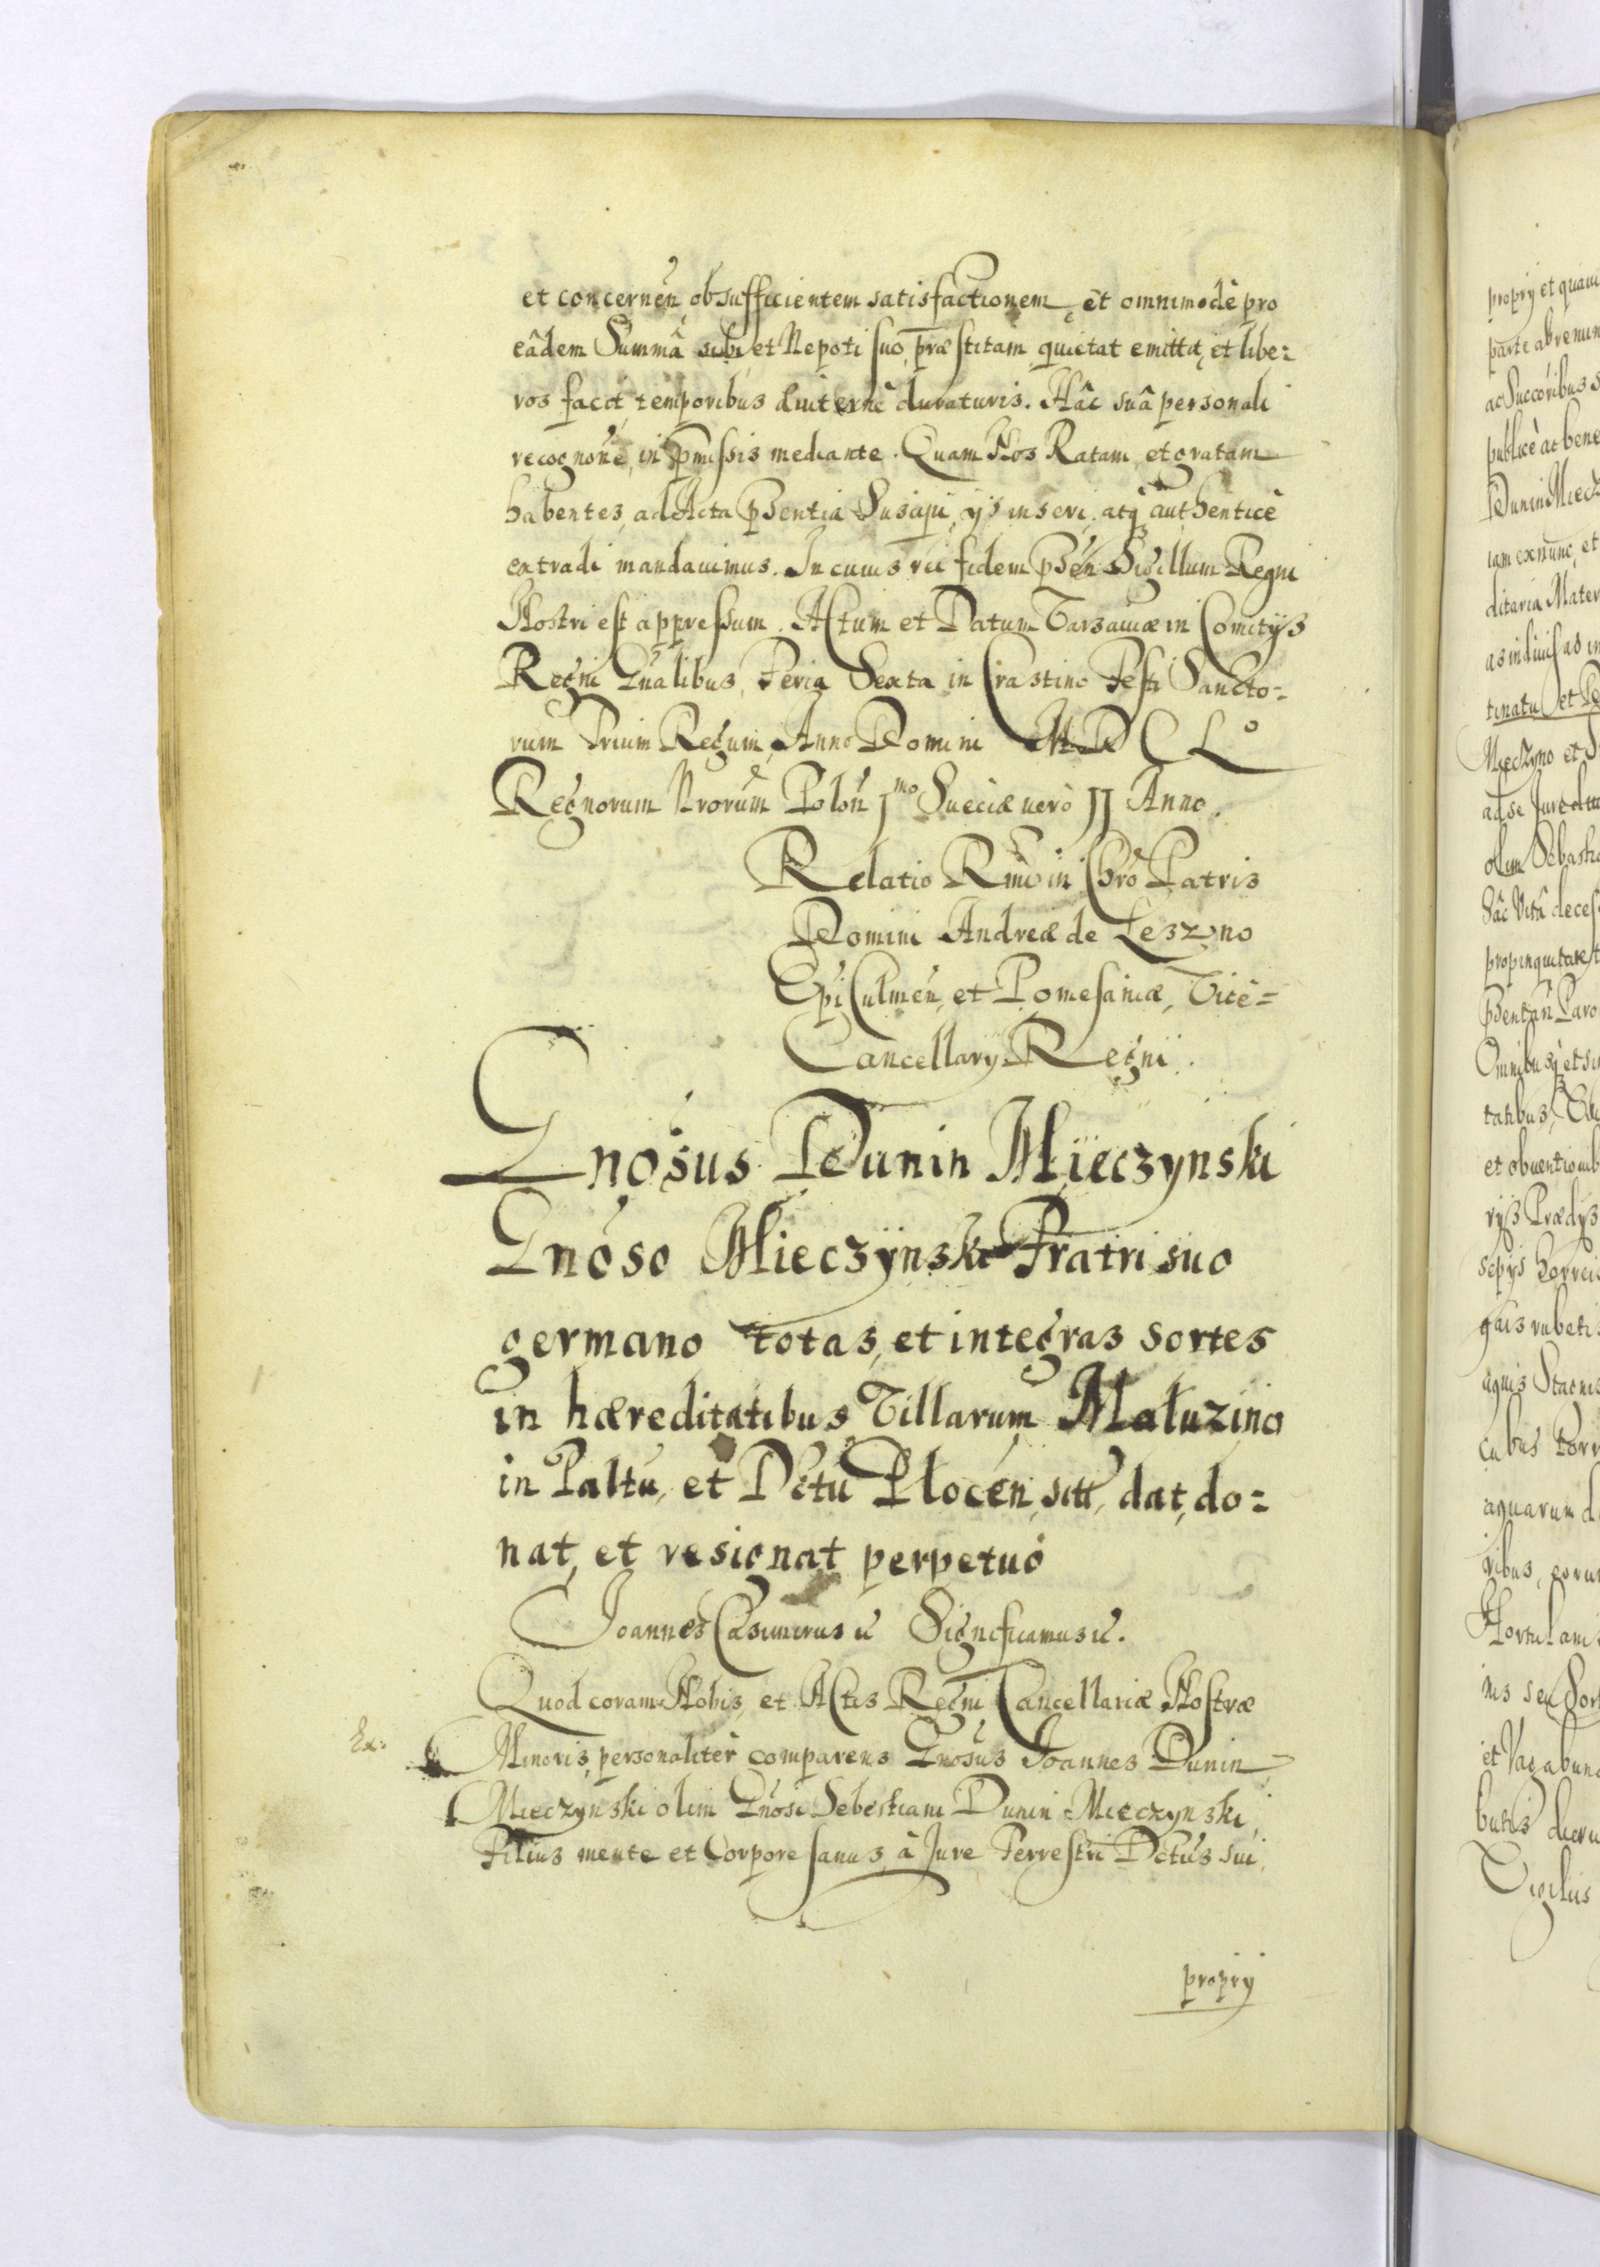 et concernen̄, ob sufficientem satisfactionem, et omnimodè pro
eâdem Summâ sibi et Nepoti suo, præstitam, quietat emittit, et libe=
ros facit, temporibus æuiternè duraturis. Hâc suâ personali
recognōne, in p̄missis mediante. Quam Nos Ratam et gratam
habentes, ad Acta p̄sentia Suscipi, ijs inseri, atq̄ authenticè
extradi mandauimus. In cuius rei fidem p̄sen̄ Sigillum Regni
Nostri est appressum. Actum et Datum Varsauiæ in Comitijs
Regni Gn̄alibus, Feria Sexta in Crastino Festi Sancto=
rum Trium Regum, Anno Domini MDCLº
Regnorum Nrorum Polon̄ Jmo Sueciæ uerò JJ Anno.
Relatio Rm̄i in Chrō Patris
Domini Andreæ de Leszno
Ep̄i Culmen̄, et Pomesaniæ, Vice=
Cancellarij Regni.
Gnōsus Dunin Mieczynski
Gnōso Mieczÿnski Fratri suo
germano totas, et integras sortes
in hæreditatibus Villarum Małuzino
in Paltu, et Dctū Plocen̄, sitt, dat, do=
nat, et resignat perpetuò
Joannes Casimirus &c Significamus &c.
Quod coram Nobis, et Actis Regni Cancellariæ Nostræ
Ex:
Minoris, personalitèr comparens Gnōsus Joannes Dunin
Mieczynski olim Gnōsi Sebestiani Dunin Mieczynski,
Filius mente et Corpore sanus, à Jure Terrestri Dctūs sui,
proprij
propry et quam
parte abrenun
ac Succoribus s
publicè ac bene
Dunin Miecz
iam ex nunc, et
ditaria Mater
as indiuisas in
tinatu et
Mieczyno et
ad se Jure
olim Sebastia
hâc Vitâ decess
propinquitate
p̄sentan̄ Paro
Omnibusq̄ et
tatibus,
et obuentionib
rijs Prædijs
sepijs horreis
gais rubetis
aquis Stacnis
cubus torr
aquarum d
ribus, eorum
Hortulanis
nis seu Sort
et Vagabund
butis